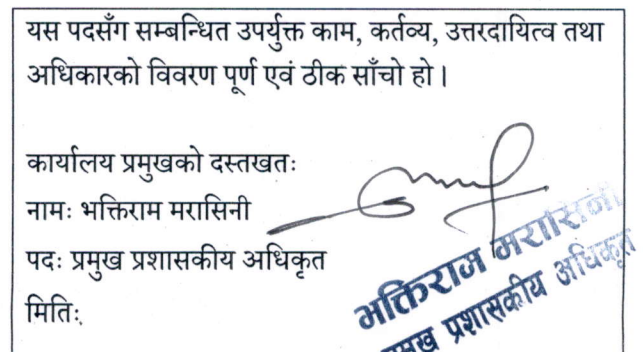 यस पदसँग सम्बन्धित उपर्युक्त काम, कर्तव्य, उत्तरदायित्व तथा
अधिकारको विवरण पूर्ण एवं ठीक साँचो हो ।
कार्यालय प्रमुखको दस्तखतः
नामः भक्तिराम मरासिनी
पदः प्रमुख प्रशासकीय अधिकृत
मितिः
भक्तिराज मरासिनी
प्रमुख प्रशासकीय अधिकृत